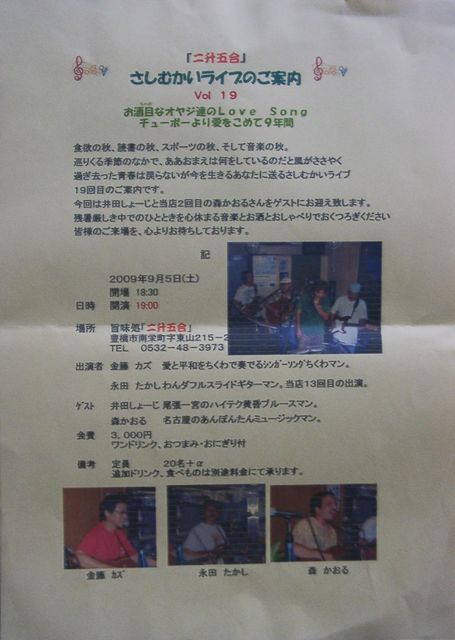 「二升五合」
さしむかいライブのご案内
Vol 19
お洒目なオヤジ達のLove Song
チューボーより愛をこめて9年間
食欲の秋、読書の秋、スポーツの秋、そして音楽の秋。
巡りくる季節のなかで、ああおまえは何をしているのだと風がささやく
過ぎ去った青春は戻らないが今を生きるあなたに送るさしむかいライブ
19回目のご案内です。
今回は井田しょーじと当店2回目の森かおるさんをゲストにお迎え致します。
残暑厳しき中でのひとときを心休まる音楽とお酒とおしゃべりでおくつろぎください
皆様のご来場を、心よりお待ちしております。
記
2009年9月5日(土)
開場 18:30
日時 開演 19:00
場所 旨味処「二升五合」
豊橋市南栄町字東山215-2
TEL 0532-48-3973
出演者 金藤 カズ 愛と平和をちくわで奏でるシンガーソングちくわマン。
永田 たかし わんダフルスライドギターマン。当店13回目の出演。
ゲスト 井田しょーじ 尾張一宮のハイテク黄昏ブルースマン。
森かおる 名古屋のあんぽんたんミュージックマン。
会費 3,000円
ワンドリンク、おつまみ・おにぎり付
備考 定員 20名+α
追加ドリンク、食べものは別途料金にて承ります。
金藤 カズ
永田 たかし
森 かおる